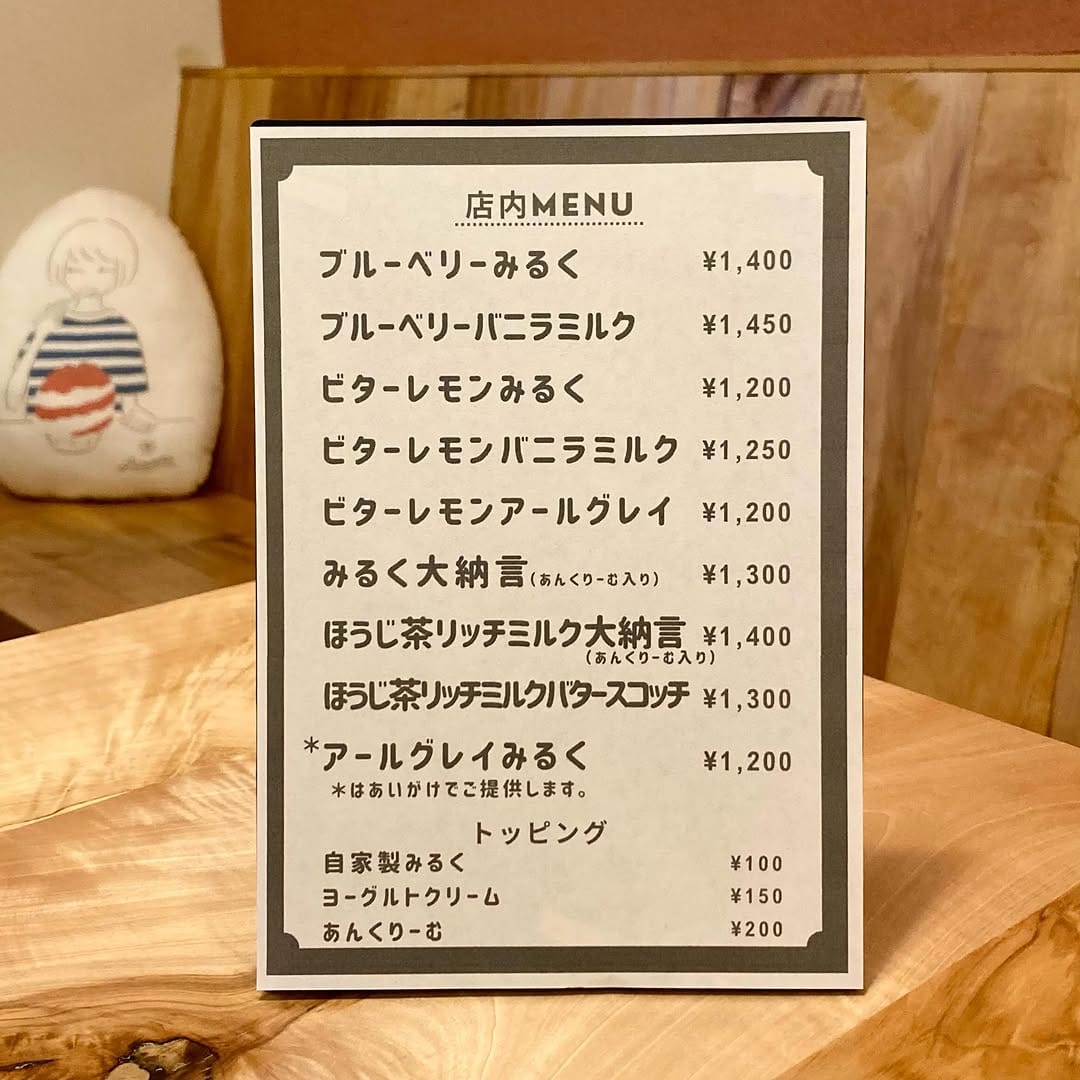 店内MENU
ブルーベリーみるく ¥1,400
ブルーベリーバニラミルク ¥1,450
ビターレモンみるく ¥1,200
ビターレモンバニラミルク ¥1,250
ビターレモンアールグレイ ¥1,200
みるく大納言(あんくりーむ入り) ¥1,300
ほうじ茶リッチミルク大納言 ¥1,400
(あんくりーむ入り)
ほうじ茶リッチミルクバタースコッチ ¥1,300
*アールグレイみるく ¥1,200
*はあいがけでご提供します。
トッピング
自家製みるく ¥100
ヨーグルトクリーム ¥150
あんくりーむ ¥200